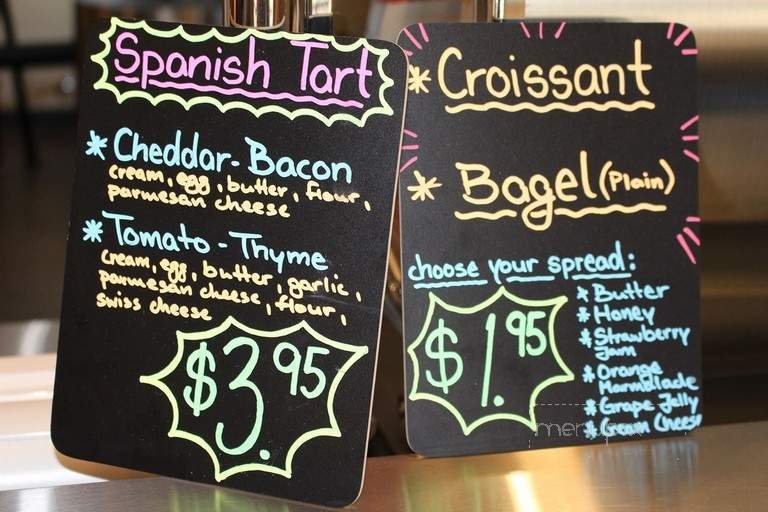 Spanish Tart
* Cheddar-Bacon
cream, egg, butter, flour,
parmesan cheese
* Tomato-Thyme
cream, egg, butter, garlic,
parmesan cheese, flour,
swiss cheese
$3.95
* Croissant
* Bagel (Plain)
choose your spread:
$1.95
* Butter
* Honey
* Strawberry
Jam
* Orange
Marmblade
* Grape Jelly
* Cream Cheese